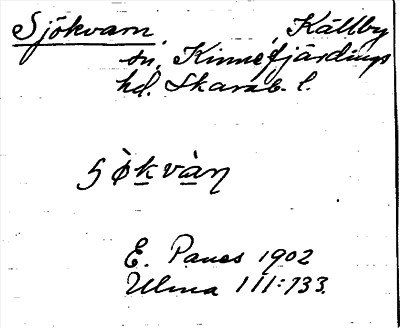 Sjökvarn, Källby
sn, Kinnefjärdings
hd. Skarab. l.
sökvàn
E. Panes 1902
Ulma 111:733.